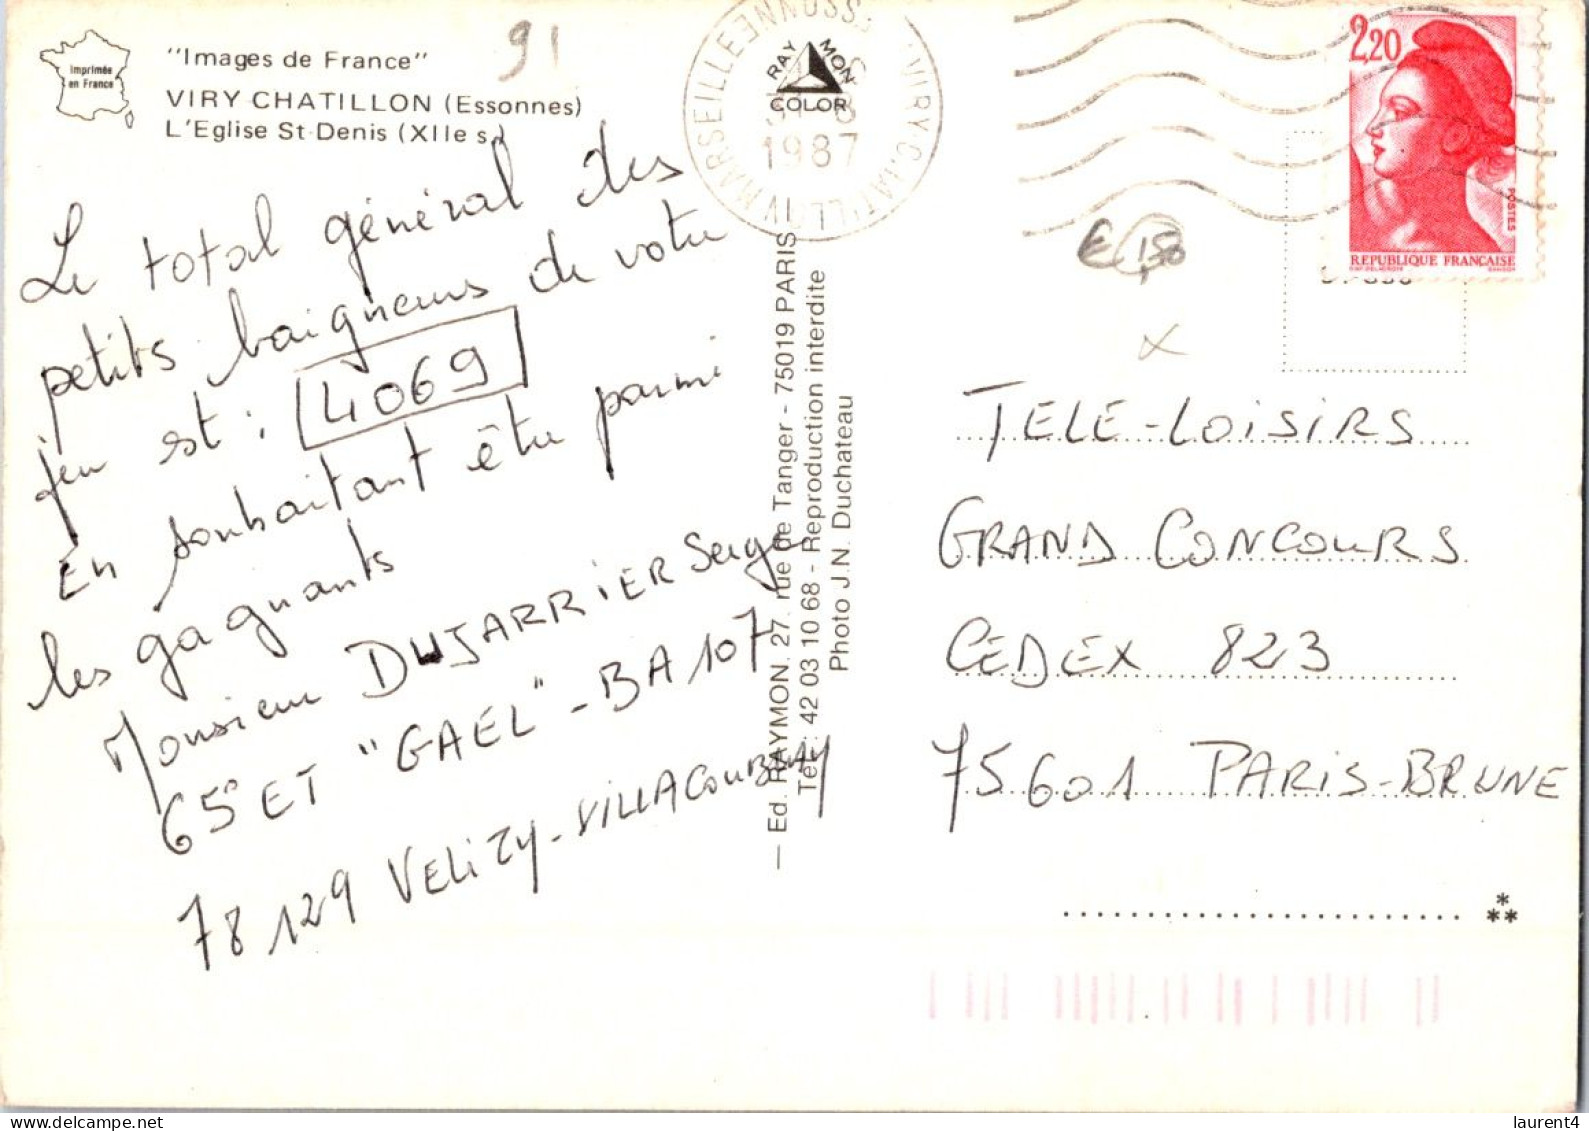 Imprimée
en France
"Images de France"
VIRY CHATILLON (Essonnes)
L'Eglise St-Denis (XIIe s.)
91
Le total général des
petits baigneurs de votre
jeu est : 4069
En souhaitant être parmi
les gagnants
Monsieur DUJARRIER Serge
65° ET "GAEL" - BA 107
78 129 VELIZY-VILLACOUBLAY
RAYMON
COLOR
1987
— Ed. RAYMON. 27, rue de Tanger - 75019 PARIS
Tél. : 42 03 10 68 - Reproduction interdite
Photo J.N. Duchateau
2,20
POSTES
REPUBLIQUE FRANÇAISE
€ 1,50
TELE-LOISIRS
GRAND CONCOURS
CEDEX 823
75601 PARIS-BRUNE
laurent4